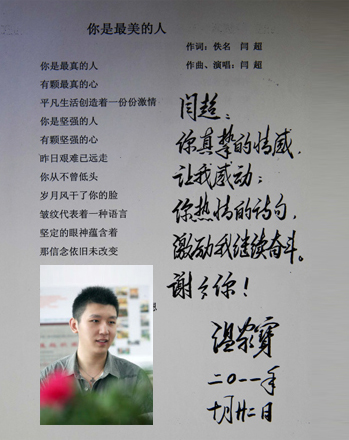 你是最美的人
作词：佚名 闫 超
作曲、演唱：闫 超
你是最真的人
有颗最真的心
平凡生活创造着一份份激情
你是坚强的人
有颗坚强的心
昨日艰难已远走
你从不曾低头
岁月风干了你的脸
皱纹代表着一种语言
坚定的眼神蕴含着
那信念依旧未改变
闫超：
你真挚的情感，
让我感动；
你热情的诗句，
激励我继续奋斗。
谢谢你！
二〇一一年
十月廿二日